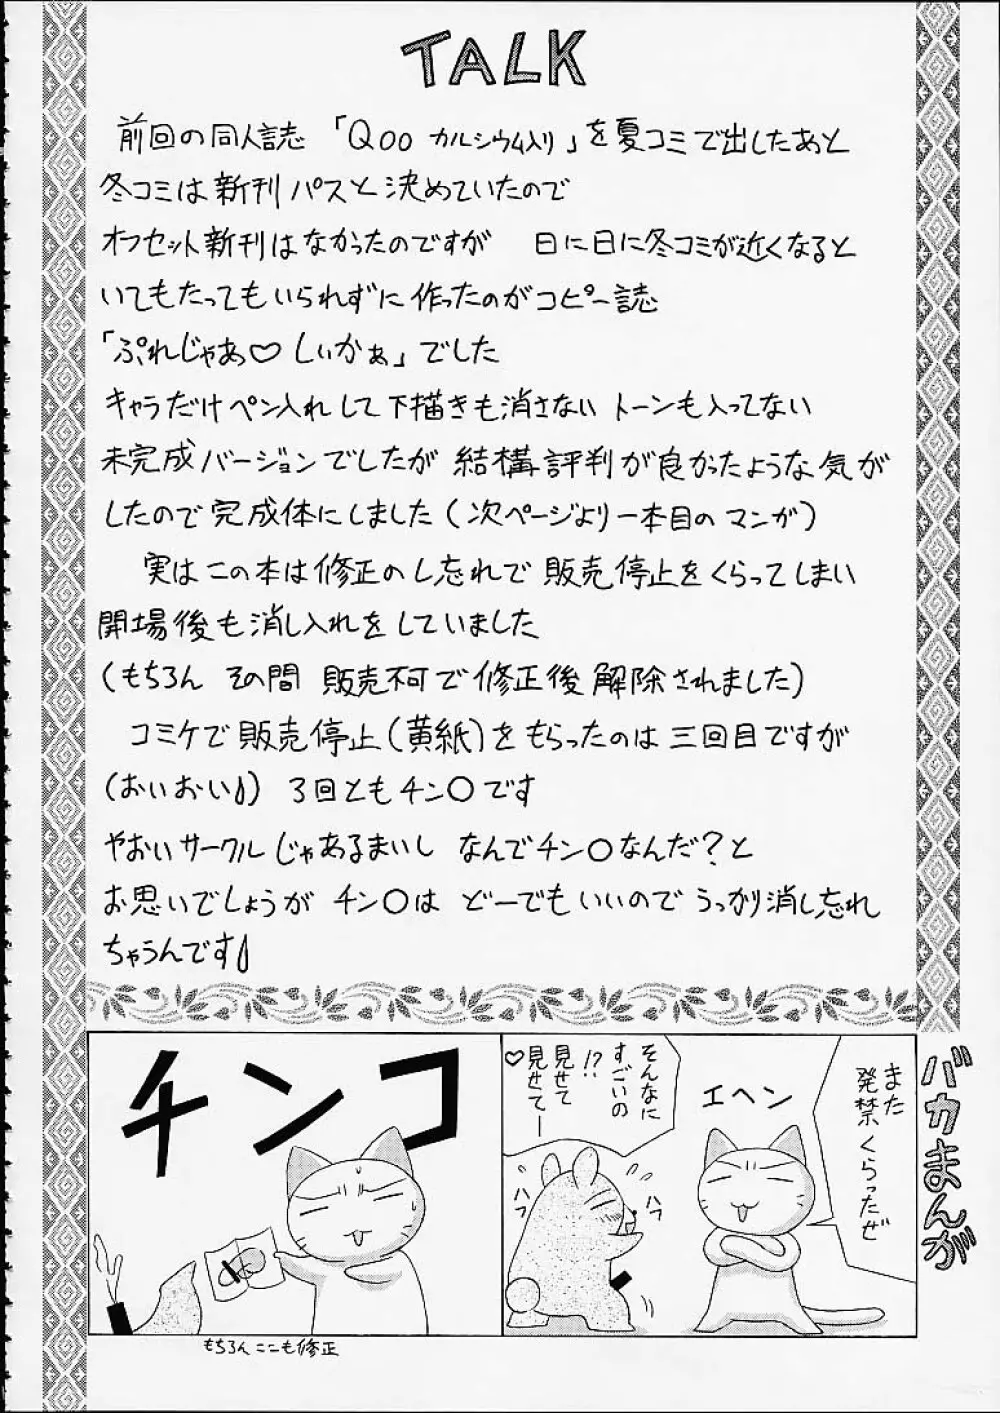 TALK
前回の同人誌 「Qoo カルシウム入り」を夏コミで出したあと
冬コミは新刊パスと決めていたので
オフセット新刊はなかったのですが 日に日に冬コミが近くなると
いてもたってもいられずに作ったのがコピー誌
「ぷれじゃあ♡しぃかぁ」でした
キャラだけペン入れして下描きも消さない トーンも入ってない
未完成バージョンでしたが 結構評判が良かったような気が
したので完成体にしました(次ページより一本目のマンガ)
実はこの本は修正のし忘れで販売停止をくらってしまい
開場後も消し入れをしていました
(もちろん その間 販売不可で修正後解除されました)
コミケで販売停止(黄紙)をもらったのは三回目ですが
(おいおい) 3回ともチン○です
やおいサークルじゃあるまいし なんでチン○なんだ?と
お思いでしょうが チン○は どーでもいいので うっかり消し忘れ
ちゃうんです
バカまんが
また
発禁くらったぜ
エヘン
そんなに
すごいの
!?
見せて
見せてー
♡
ハフ
ハフ
チンコ
もちろんここも修正